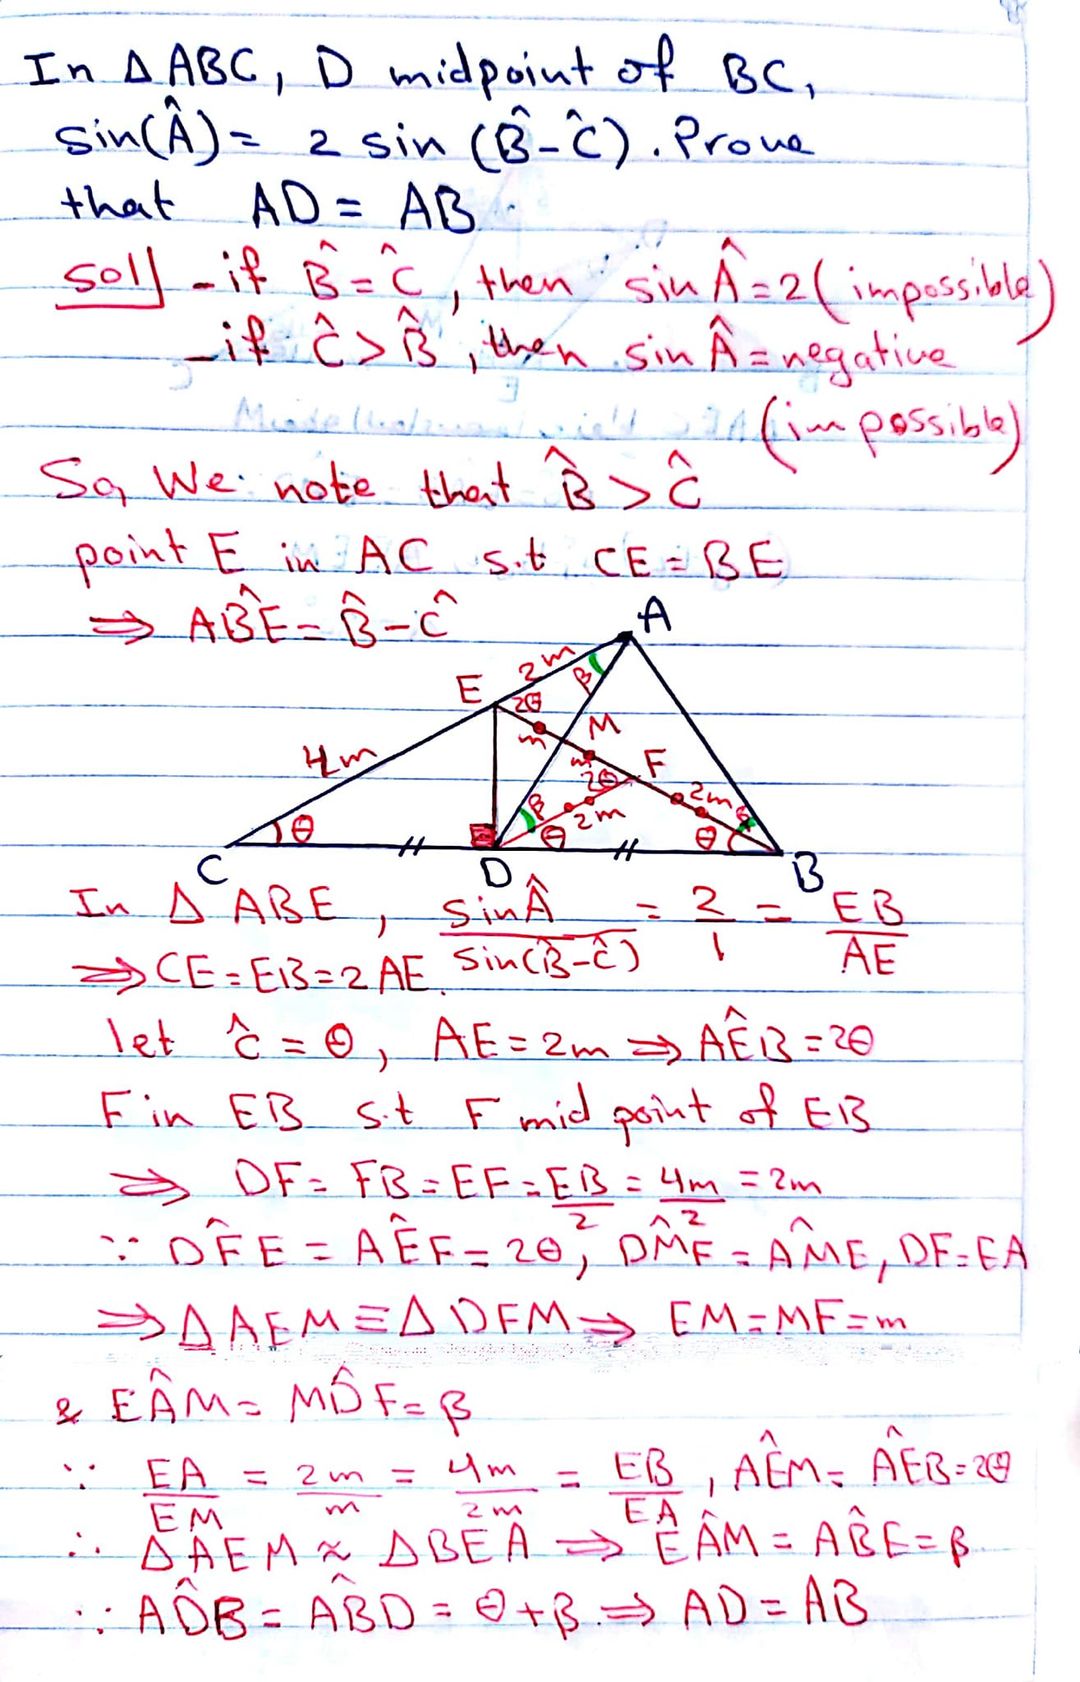 In Δ ABC, D midpoint of BC,
sin(Â) = 2 sin (B̂-Ĉ). Prove
that AD = AB.
sol] - if B̂ = Ĉ, then sin Â = 2 (impossible)
- if Ĉ > B̂, then sin Â = negative
(impossible)
So, We note that B̂ > Ĉ
point E in AC s.t CE = BE
⇒ AB̂E = B̂ - Ĉ
A
2m
E 2θ β
m M
4m m F
2θ
β 2m
θ θ 2m θ
C D B
In Δ ABE, sinÂ / sin(B̂-Ĉ) = 2/1 = EB/AE
⇒ CE = EB = 2 AE.
let Ĉ = θ, AE = 2m ⇒ AÊB = 2θ
F in EB s.t F mid point of EB
⇒ DF = FB = EF = EB/2 = 4m/2 = 2m
∵ DF̂E = AÊF = 2θ, DM̂F = AM̂E, DF = EA
⇒ Δ AEM ≡ Δ DFM ⇒ EM = MF = m
& EÂM = MD̂F = β
∵ EA/EM = 2m/m = 4m/2m = EB/EA, AÊM = AÊB = 2θ
∴ Δ AEM ≈ Δ BEA ⇒ EÂM = AB̂E = β
∵ AD̂B = AB̂D = θ + β ⇒ AD = AB